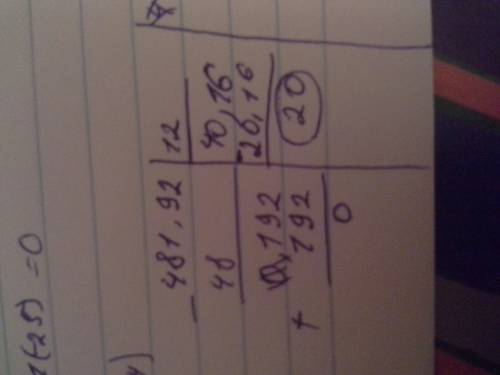 (-25) =0
- 481,92 | 12
48 40,16
,192 -20,16
+ 192 20
0